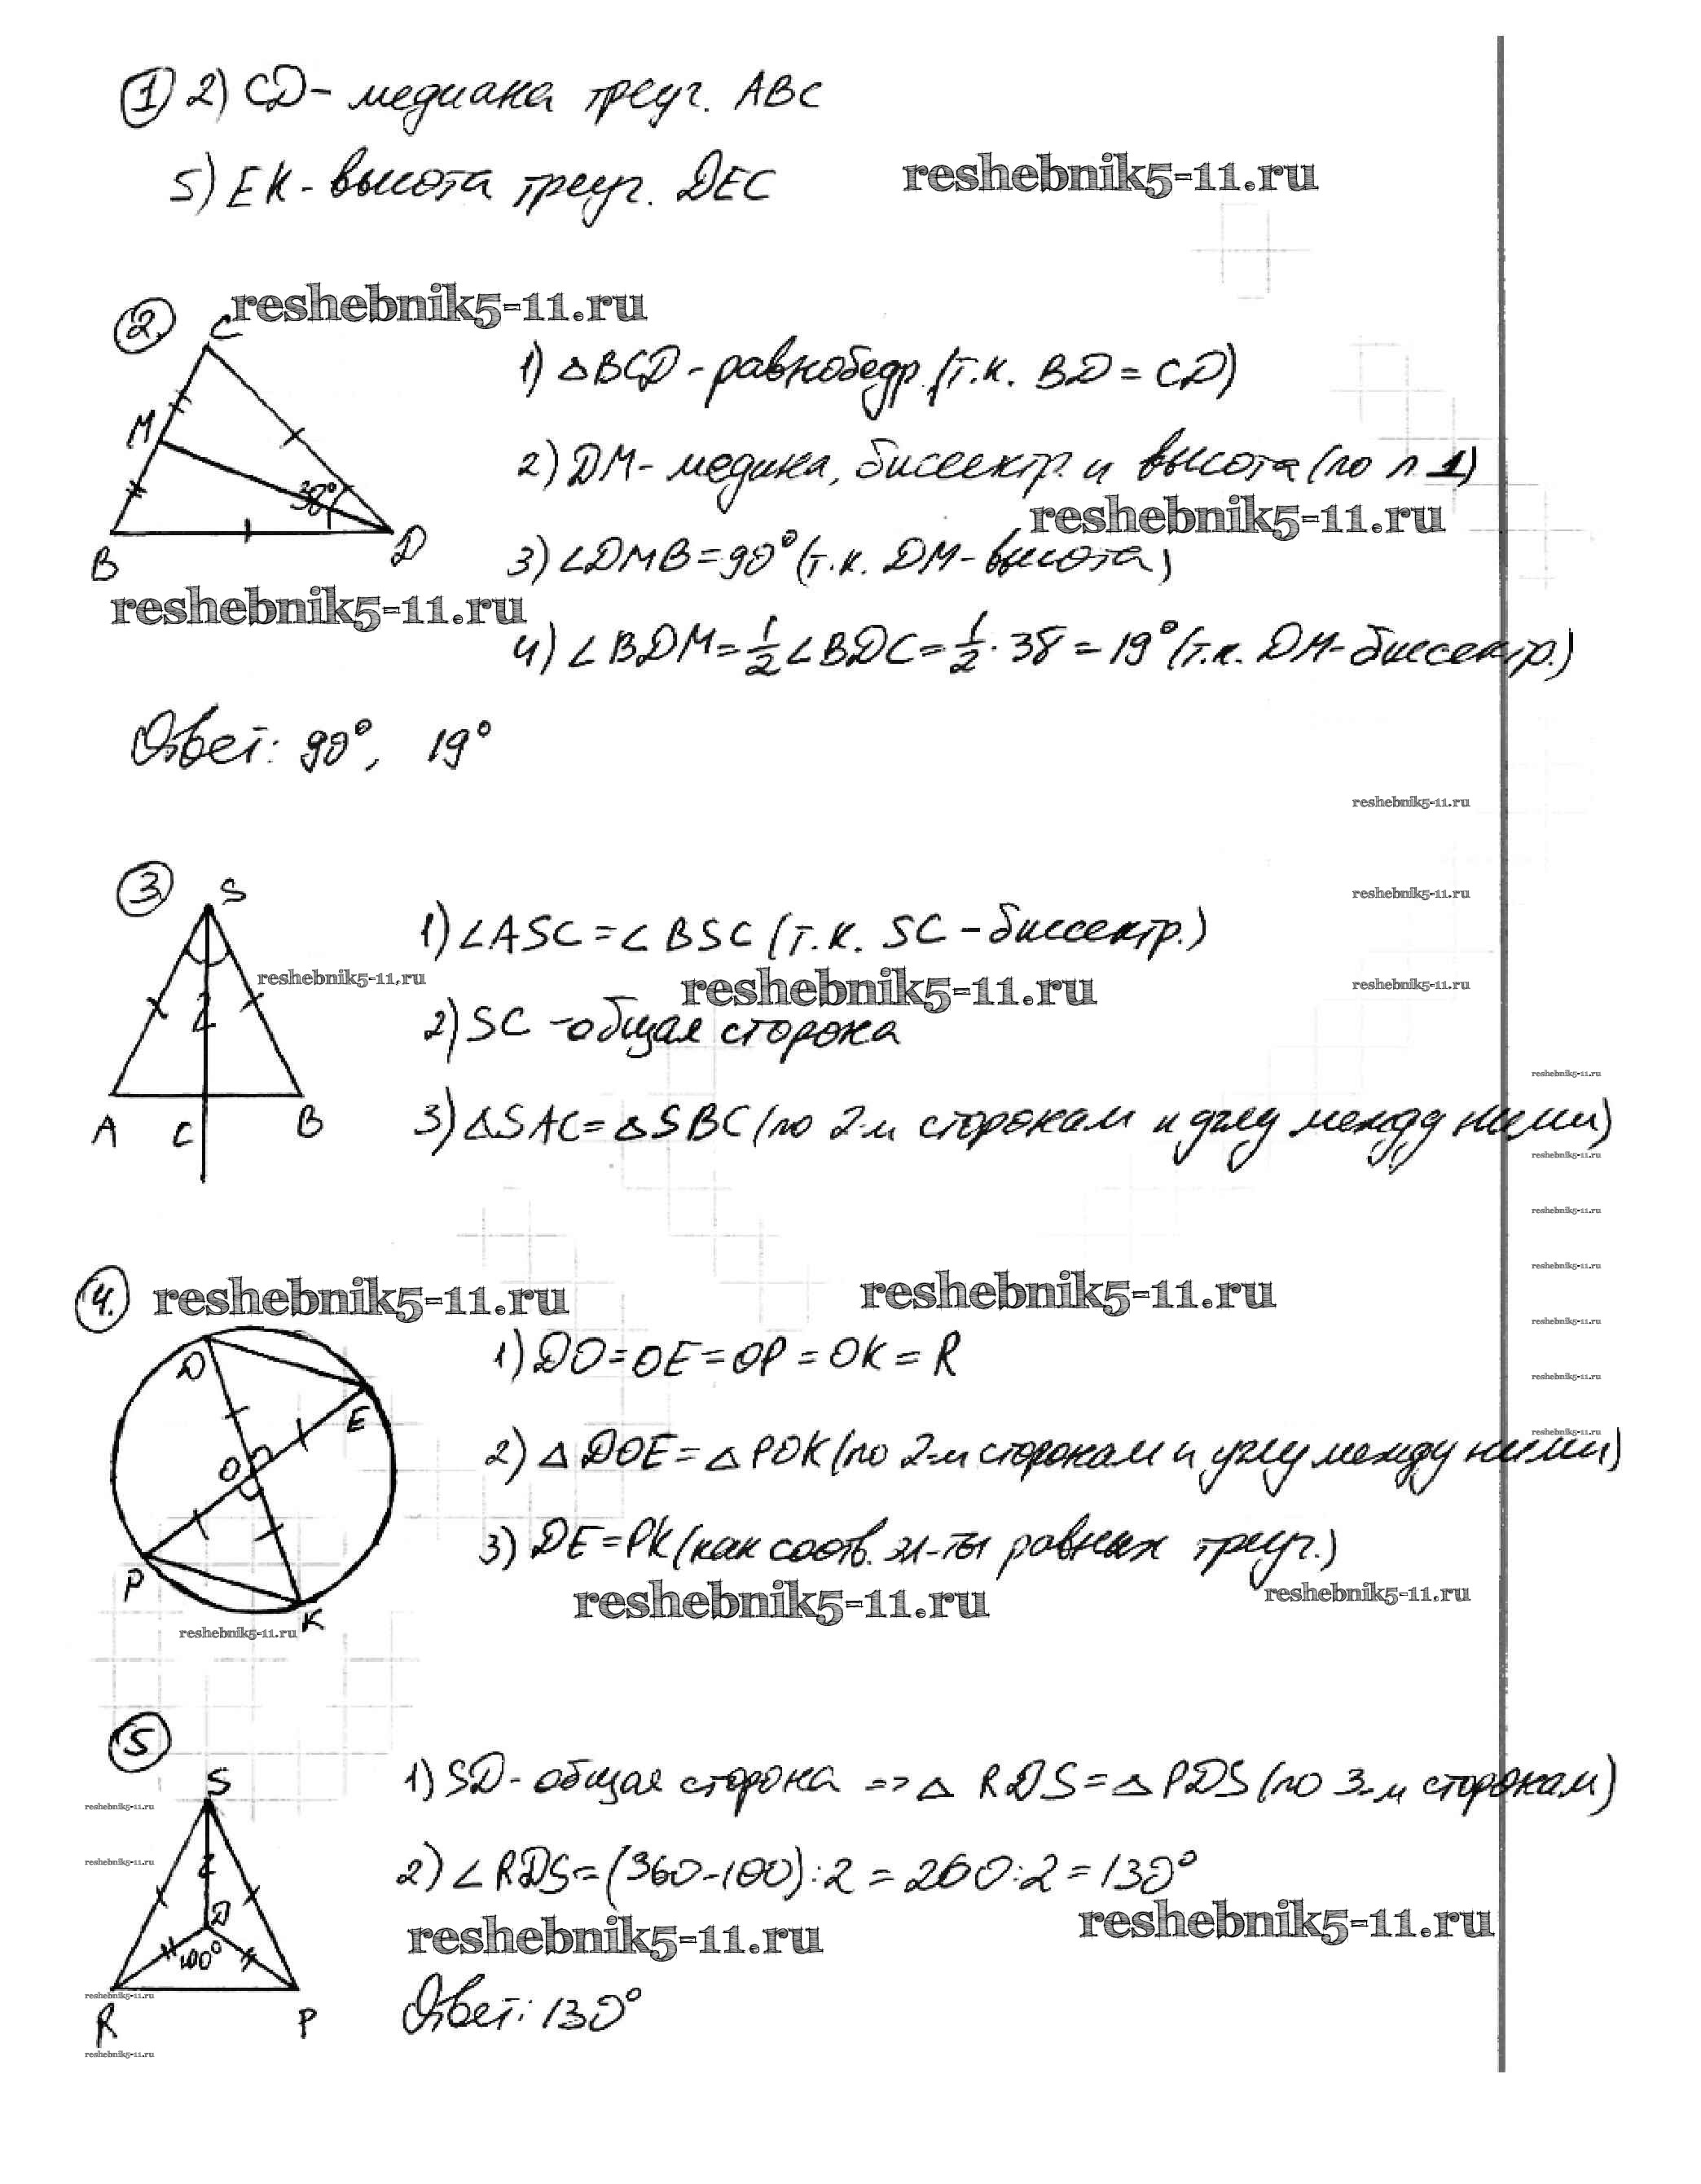 1) 2) CD - медиана треуг. ABC
5) EK - высота треуг. DEC
reshebnik5-11.ru
2. reshebnik5-11.ru
C
M
38°
B
D
1) △BCD - равнобедр. (т.к. BD = CD)
2) DM - медина, биссектр. и высота (по п 1)
reshebnik5-11.ru
3) ∠DMB = 90° (т.к. DM - высота)
reshebnik5-11.ru
4) ∠BDM = 1/2 ∠BDC = 1/2 · 38 = 19° (т.к. DM - биссектр.)
Ответ: 90°, 19°
reshebnik5-11.ru
3
S
A C B
reshebnik5-11.ru
1) ∠ASC = ∠BSC (т.к. SC - биссектр.)
reshebnik5-11.ru
reshebnik5-11.ru
reshebnik5-11.ru
2) SC - общая сторона
reshebnik5-11.ru
3) △SAC = △SBC (по 2-м сторонам и углу между ними)
reshebnik5-11.ru
reshebnik5-11.ru
reshebnik5-11.ru
4. reshebnik5-11.ru reshebnik5-11.ru
reshebnik5-11.ru
D
E
O
P
K
1) DO = OE = OP = OK = R
reshebnik5-11.ru
reshebnik5-11.ru
2) △DOE = △POK (по 2-м сторонам и углу между ними)
3) DE = PK (как соотв. эл-ты равных треуг.)
reshebnik5-11.ru reshebnik5-11.ru
reshebnik5-11.ru
5
S
D
100°
R P
1) SD - общая сторона => △ RDS = △ PDS (по 3-м сторонам)
reshebnik5-11.ru
2) ∠RDS = (360-100):2 = 260:2 = 130°
reshebnik5-11.ru
reshebnik5-11.ru reshebnik5-11.ru
reshebnik5-11.ru
Ответ: 130°
reshebnik5-11.ru